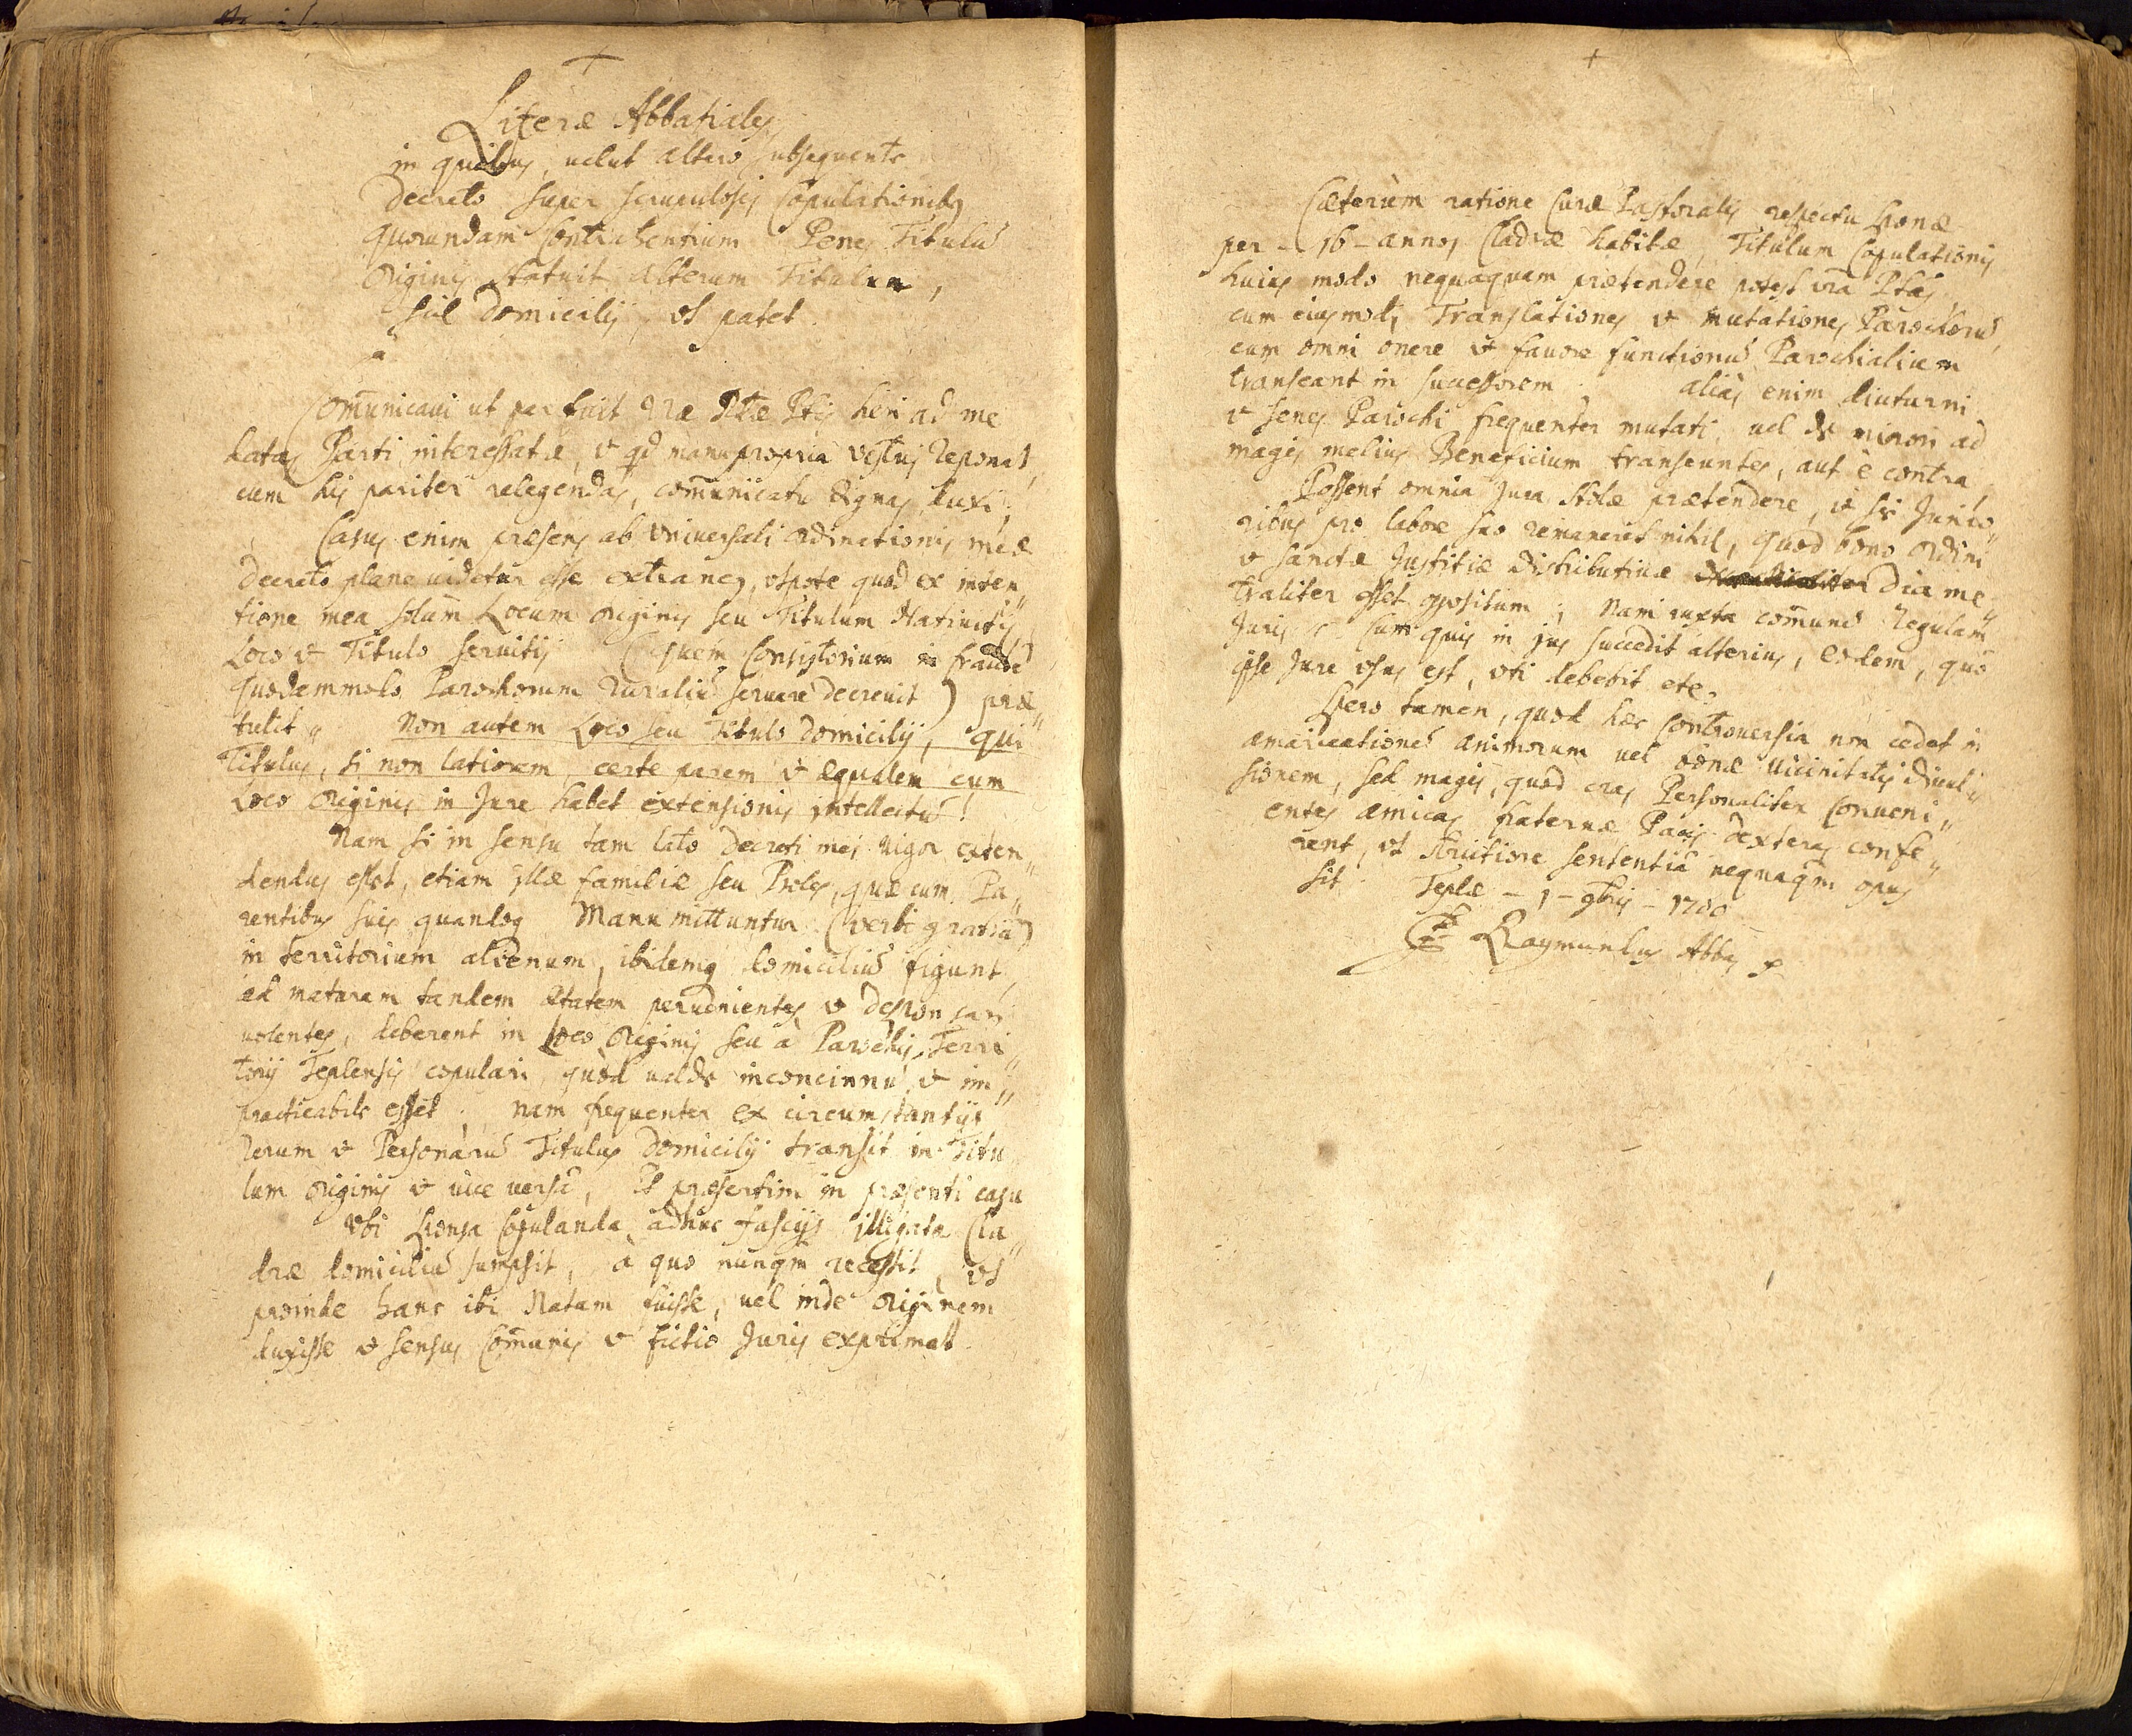 +
Literæ Abbatiales
in quibus, uelut altero subsequente
Decreto super scrupulosis Copulationibus
quorundam Contrahentium Penes Titulū
Originis statuit alterum Titulum,
scil domicilij, vt patet
Com̄unicaui ut par fuit Vræ Ptis heri ad me
datas Parti interessatæ, & qd manu propria vestris reponat,
cum his pariter relegendas, com̄unicatu dignas duxi;
Casus enim præsens ab Vniversali ordinationis meæ
Decreto plane uidetur esse extraneus, vtpote quod ex inten„
tione mea solum Locum originis seu Titulum Natiuitatis
Loco & Titulo seruitij (quem Consistorium in fraudē
quodammodo Parochorum ruraliū seruare decreuit) præ„
tulit„ Non autem Loco seu Titulo domicilij, qui
Titulus, si non latiorem, certe parem & æqualem cum
Loco Originis in Jure habet extensionis intellectū!
Nam si in sensu tam lato Decreti mei uigor exten„
dendus esset, etiam illæ familiæ seu Proles, quæ cum Pa„
rentibus suis quandoq Manu mittuntur (verbi gratiâ)
in territorium alienum, ibidemq domiciliū figunt,
ad maturam tandem ætatem peruenientes & desponsari
uolentes, deberent in Loco Originis seu à Parochis Terri„
torij Teplensis copulari, quod ualde inconcinnū & im„
practicabile esset; nam frequenter ex circumstantijs
rerum & Personarū Titulus domicilij transit in Titu
lum originis & uice uersâ, Et præsertim in præsenti casu
Vbi Sponsa Copulanda adhuc fascijs illigata Cla„
dræ domiciliū sumpsit, à quo nunqm recessit, vt
proinde hanc ibi Natam fuisse, uel inde originem
duxisse & sensus Com̄unis & fictio Juris exprimat.
+
Cæterùm ratione Curæ Pastoralis respectu Sponsæ
per – 16 – annos Cladræ habitæ, Titulum Copulationis
huius modo nequaquam prætendere potest vra Ptas,
cum eiusmodi Translationes & mutationes Parochorū,
cum omni onere & fauore functionū Parochialium
transeant in successorem aliàs enim diuturni
& senes Parochi frequenter mutati, uel de minori ad
magis melius Beneficium transeuntes, aut è contra
Possent omnia Jura stolæ prætendere, & sic Junio„
ribus pro labore suo remaneret nihil, quod bono ordini
& sanctæ Justitiæ Distributiuæ dia me„
traliter esset oppositum; Nam iuxta com̄unē Regulam
Juris Cum quis in jus succedit alterius, eodem, quo
ipse Jure vsus est, vti debebit etc.
Spero tamen, quod hæc Controuersia non cedat in
amaricationē animorum uel bonæ uicinitatis diuul„
sionem, sed magis, quod cras Personaliter Conueni„
entes amicas fraternæ Pacis dexteras confe„
rent, vt strictiore sententiâ nequaqm opus
sit. Teplæ – 1 – 9bris – 1700
Raymundus Abbas